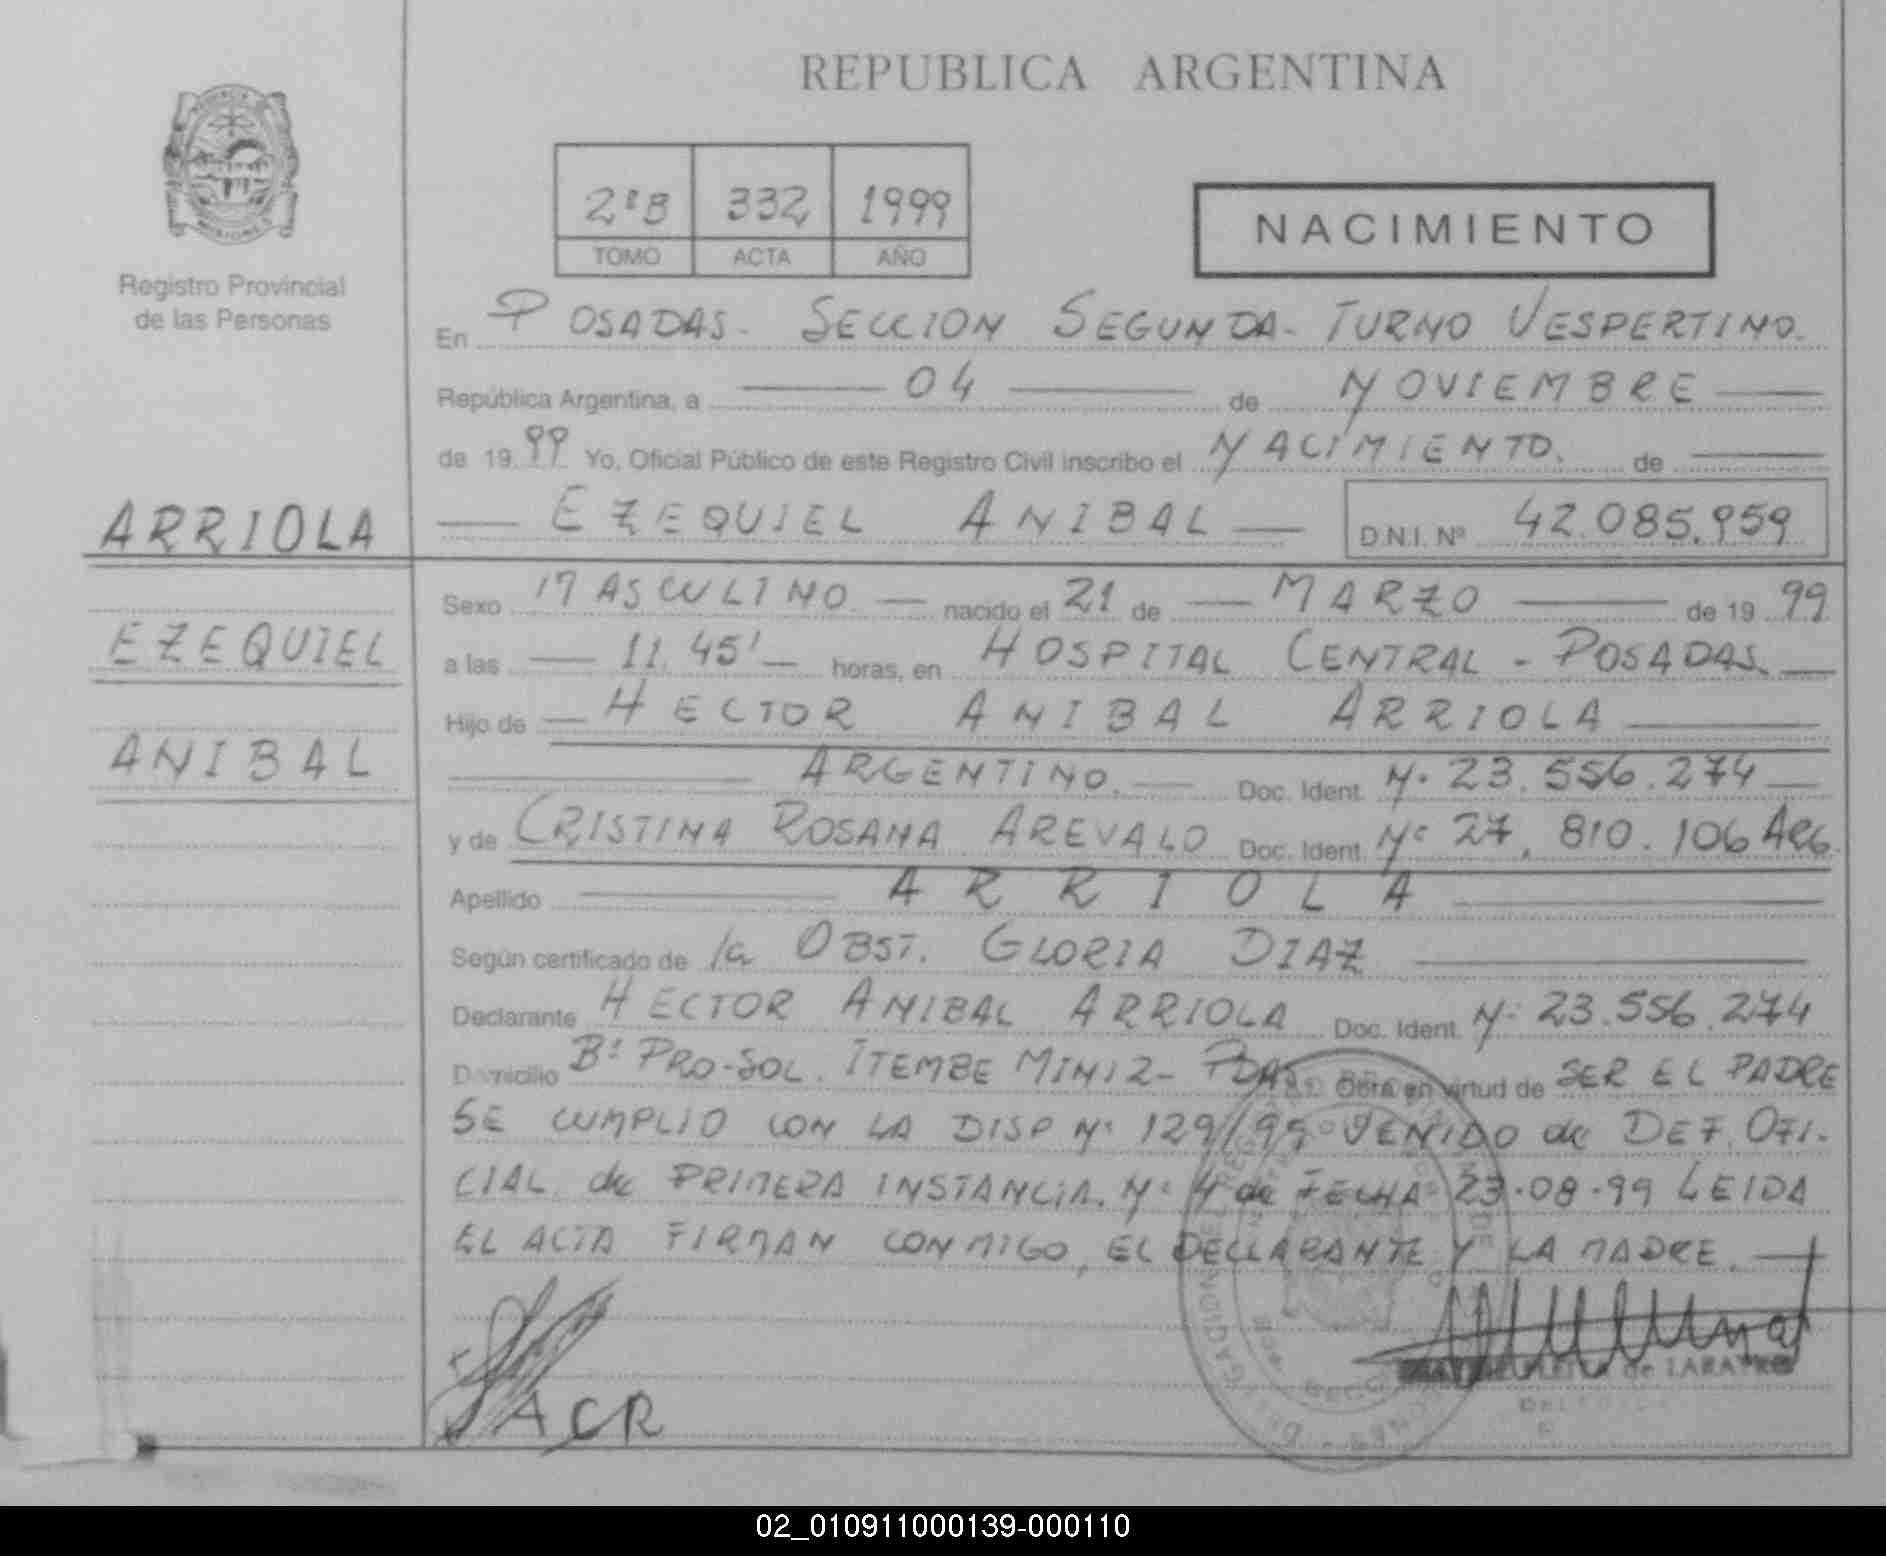 REPUBLICA ARGENTINA
MISIONES
Registro Provincial
de las Personas
2ºB 332 1999
TOMO ACTA AÑO
NACIMIENTO
En POSADAS- SECCION SEGUNDA- TURNO VESPERTINO.
República Argentina, a 04 de NOVIEMBRE
de 1999 Yo, Oficial Público de este Registro Civil inscribo el NACIMIENTO. de
ARRIOLA
EZEQUIEL ANIBAL D.N.I. Nº 42.085.959
Sexo MASCULINO nacido el 21 de MARZO de 1999
EZEQUIEL
a las 11.45' horas, en HOSPITAL CENTRAL - POSADAS.
Hijo de HECTOR ANIBAL ARRIOLA
ANIBAL
ARGENTINO. Doc. Ident. Nº 23.556.274
y de CRISTINA ROSANA AREVALO Doc. Ident. Nº 27.810.106 ARG.
Apellido ARRIOLA
Según certificado de la OBST. GLORIA DIAZ
Declarante HECTOR ANIBAL ARRIOLA Doc. Ident. Nº 23.556.274
Domicilio Bº PRO-SOL. ITEMBE MINI 2- PDAS. Obra en virtud de SER EL PADRE
SE CUMPLIO CON LA DISP Nº 129/99 VENIDO de DEF. OFI-
CIAL de PRIMERA INSTANCIA. Nº 4 de FECHA 23-08-99 LEIDA
EL ACTA FIRMAN CONMIGO, EL DECLARANTE Y LA MADRE.
ACR
02_010911000139-000110